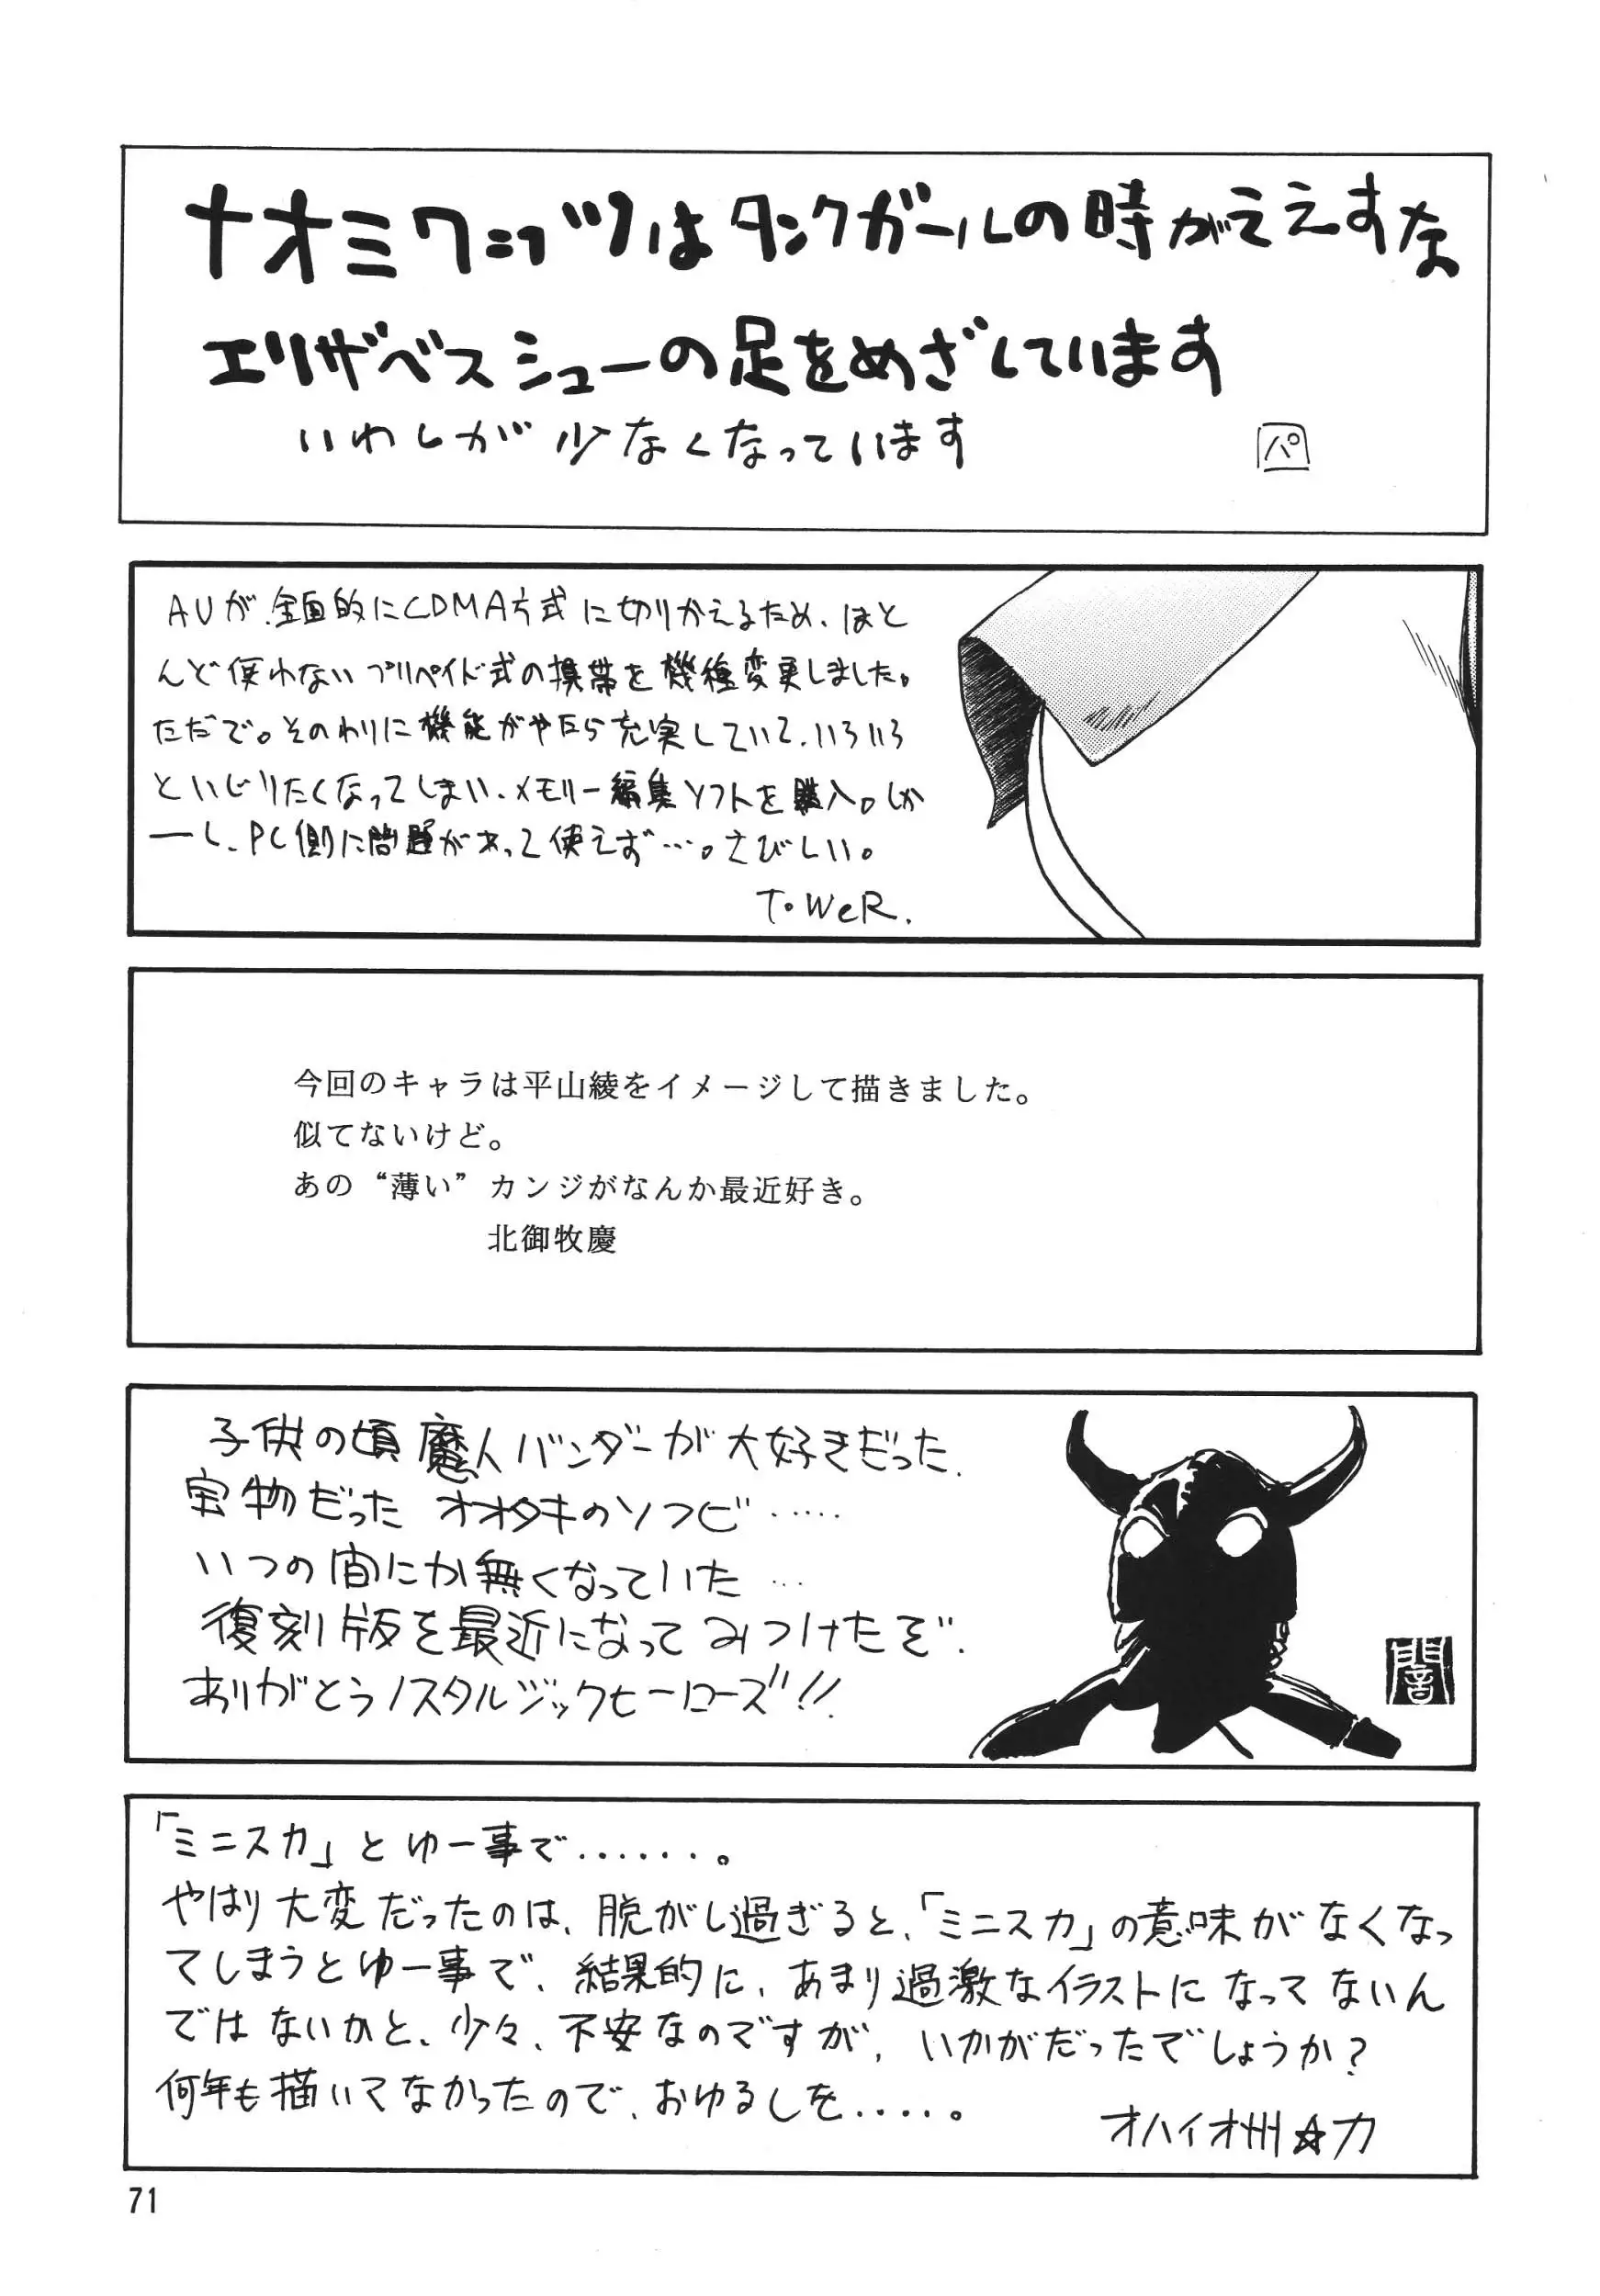 ナオミワッツはタンクガールの時がええすな
エリザベスシューの足をめざしています
いわしが少なくなっています
パ
AUが、全面的にCDMA方式に切りかえるため、ほと
んど使わないプリペイド式の携帯を機種変更しました。
ただで。そのわりに機能がやたら充実していて、いろいろ
といじりたくなってしまい、メモリー編集ソフトを購入。しか
ーし、PC側に問題があって使えず…。さびしい。
ToWeR.
今回のキャラは平山綾をイメージして描きました。
似てないけど。
あの“薄い”カンジがなんか最近好き。
北御牧慶
子供の頃魔人バンダーが大好きだった.
宝物だったオオタキのソフビ……
いつの間にか無くなっていた…
復刻版を最近になってみつけたぞ.
ありがとうノスタルジックヒーローズ!!
闇
「ミニスカ」とゆー事で.......。
やはり大変だったのは、脱がし過ぎると、「ミニスカ」の意味がなくなっ
てしまうとゆー事で、結果的に、あまり過激なイラストになってないん
ではないかと、少々、不安なのですが、いかがだったでしょうか?
何年も描いてなかったので、おゆるしを.....。
オハイオ州☆力
71